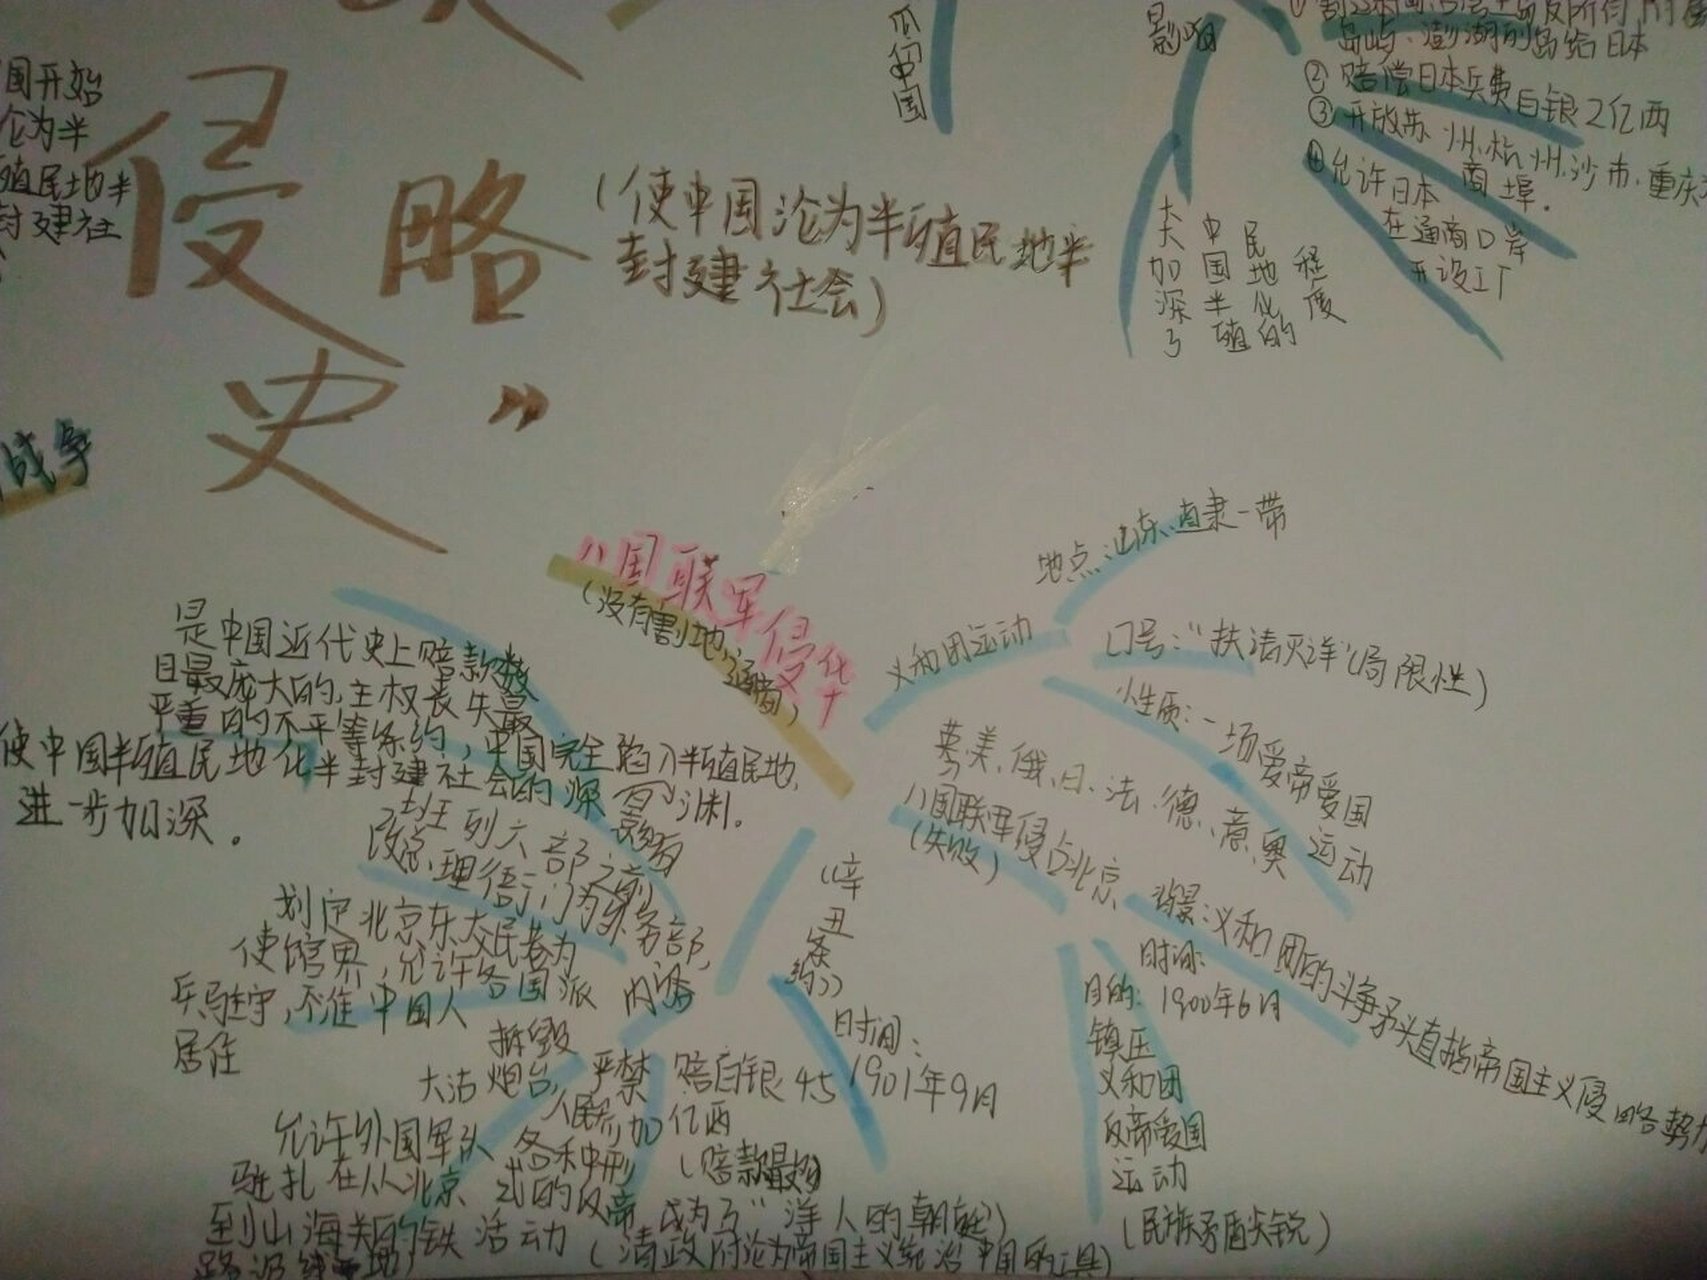 国开始
沦为半
殖民地半
封建社
侵略
史”
(使中国沦为半殖民地半
封建社会)
战争
瓜分中国
影响
岛屿、澎湖列岛给日本
② 赔偿日本兵费白银2亿两
③ 开放苏州.杭州.沙市.重庆
商埠.
④允许日本
在通商口岸
开设工厂
大大加深了
中国半殖
民地化的
程度
八国联军侵华
(没有割地,通商)
义和团运动
地点:山东、直隶一带
口号:“扶清灭洋”(局限性)
性质:一场爱帝爱国运动
英、美、俄、日、法、德、意、奥
八国联军侵占北京
(失败)
背景:义和团的斗争矛头直指帝国主义侵略势力
时间:
1900年6月
目的:
镇压
义和团
反帝爱国
运动
(民族矛盾尖锐)
《辛
丑
条
约》
时间:
1901年9月
影响
是中国近代史上赔款数
目最庞大的,主权丧失最
严重的不平等条约,中国完全陷入半殖民地,
使中国半殖民地化半封建社会的深
进一步加深。
内容
改总理衙门为外务部,
班列六部之前
划定北京东交民巷为
使馆界,允许各国派
兵驻守,不准中国人
居住
拆毁
大沽炮台,
允许外国军队
驻扎在从北京
到山海关的铁
路沿线要地
严禁
人民参加
各种形
式的反帝
活动
赔白银4.5
亿两
(赔款最多)
成为了“洋人的朝廷”)
(清政府沦为帝国主义统治中国的工具)